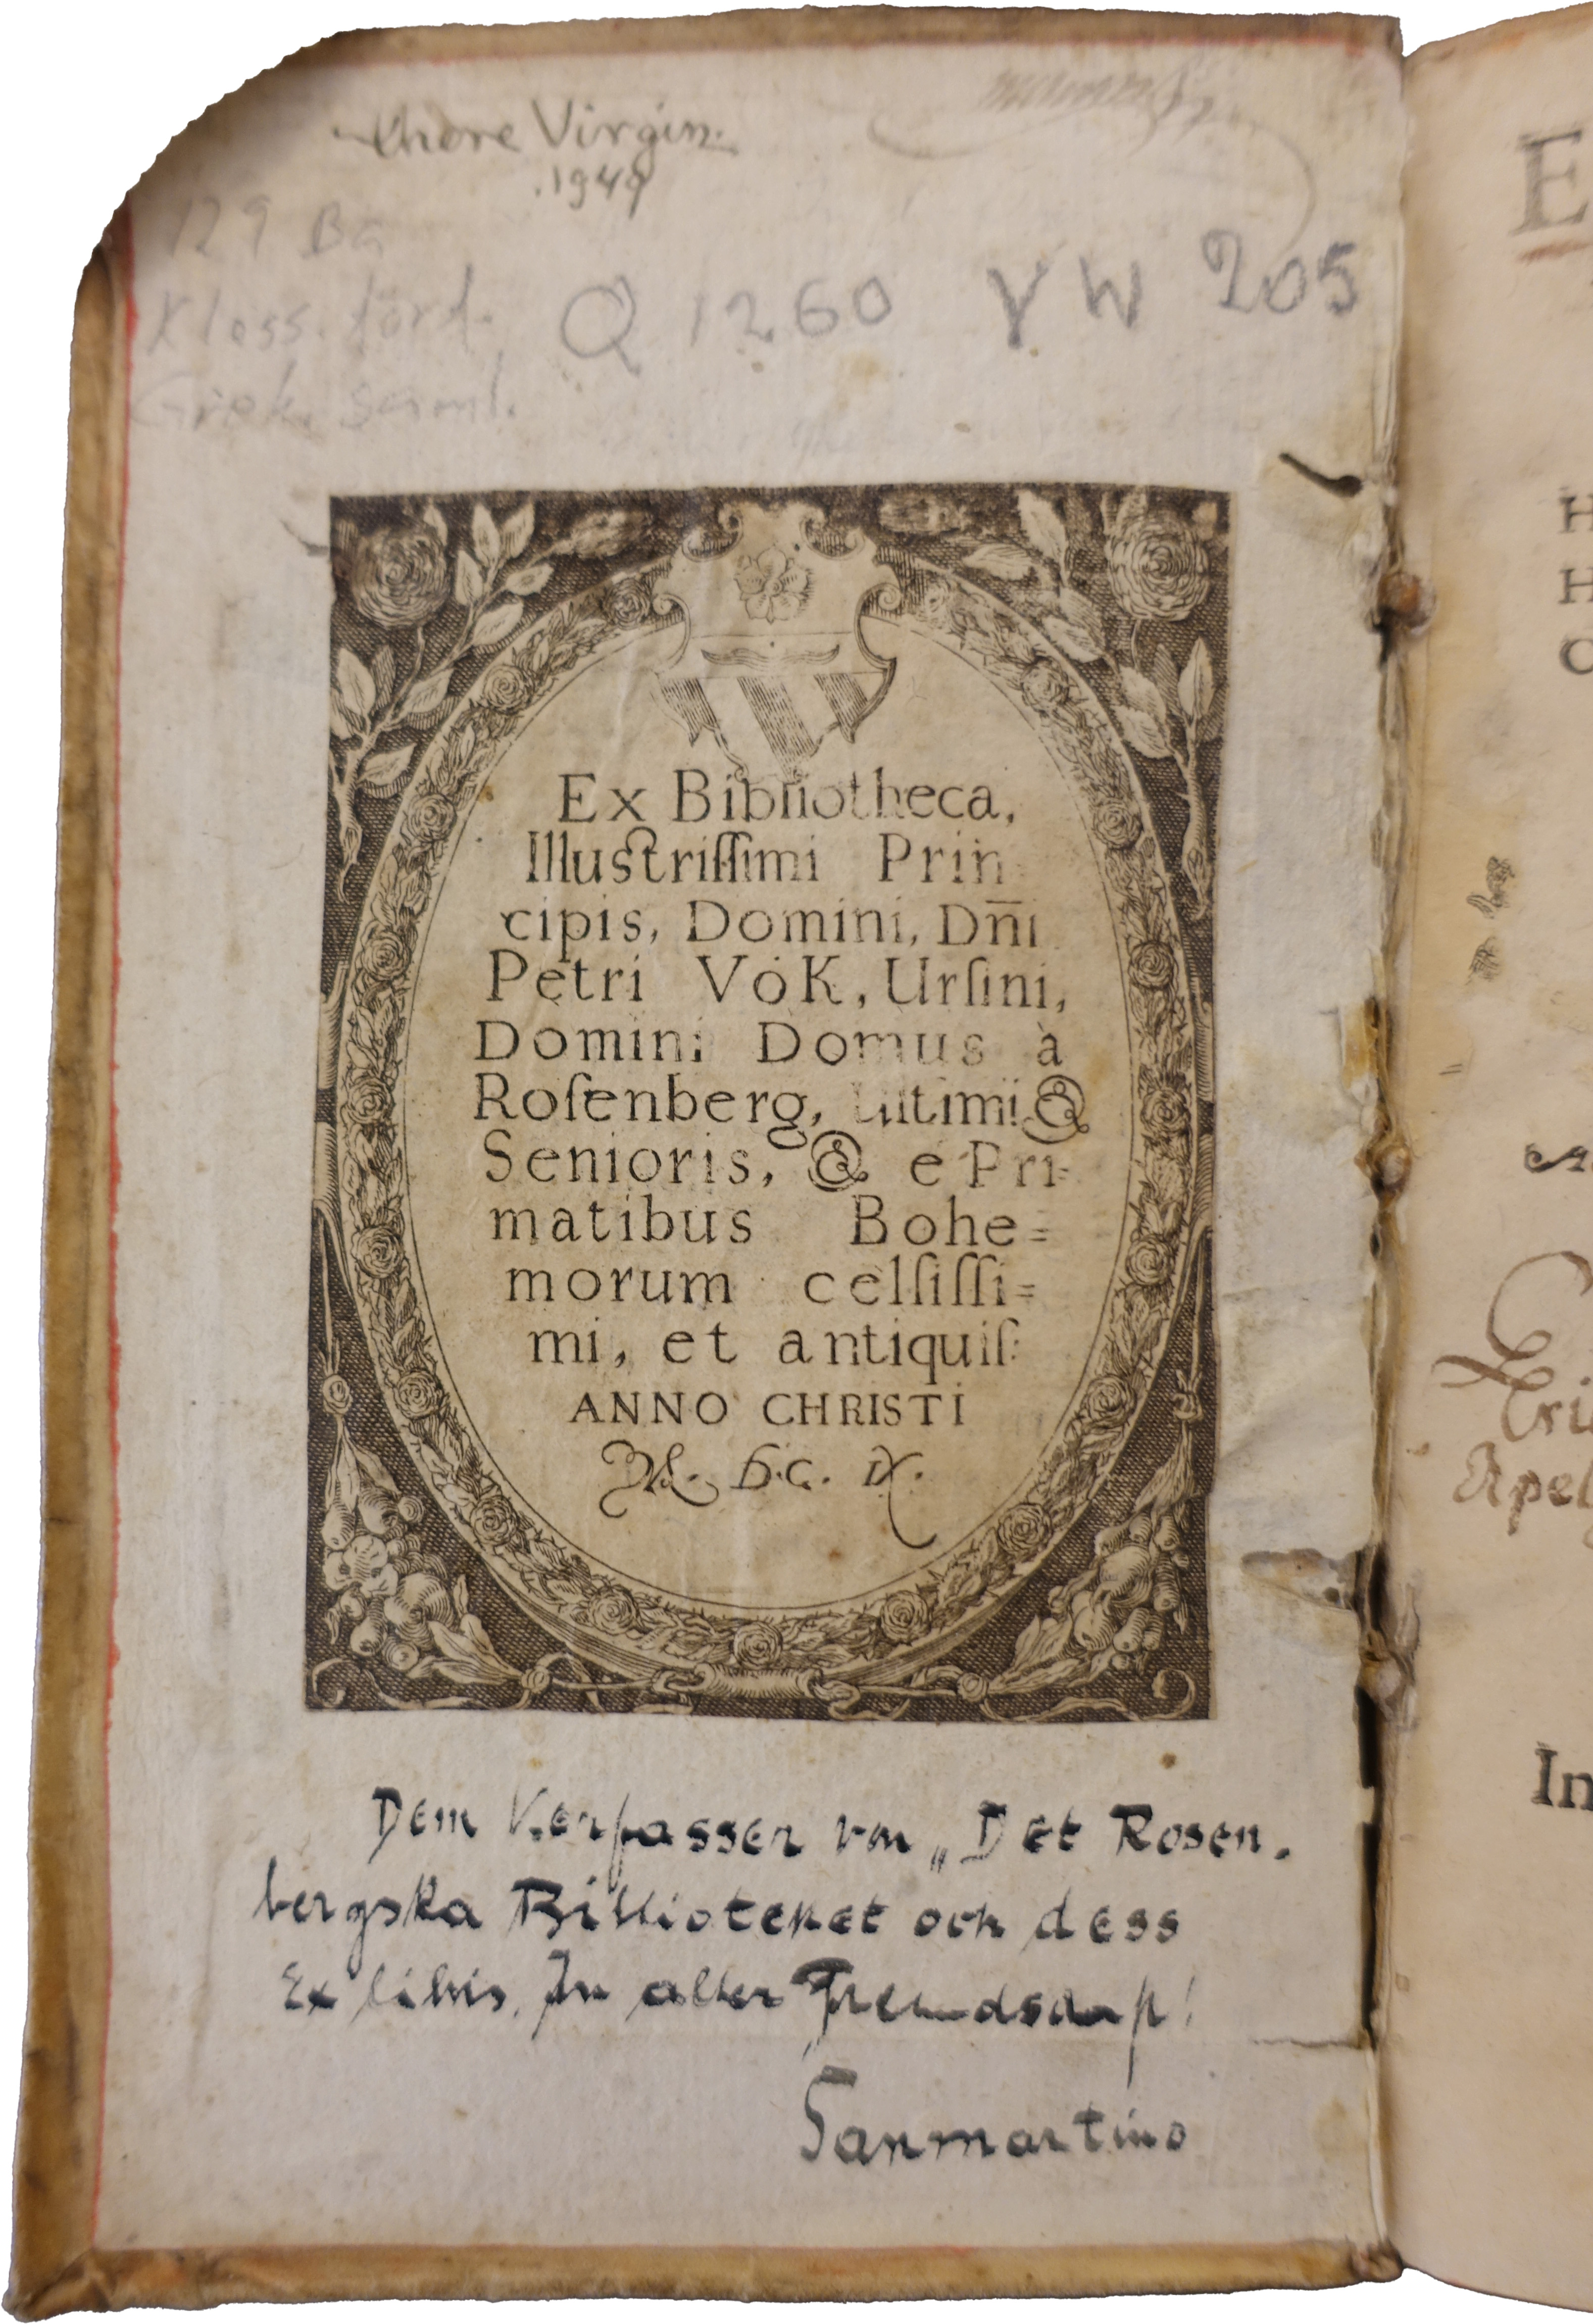 Thore Virgin.
1949
129 Ba
Kless. förf.
Grek. saml.
Q 1260 VW 205
Ex Bibliotheca,
Illustriſſimi Prin
cipis, Domini, Dn̄i
Petri VoK, Urſini,
Domini Domus à
Roſenberg, ultimi &
Senioris, & e Pri=
matibus Bohe=
morum celſiſſi=
mi, et antiquiſ:
ANNO CHRISTI
M. D.C. IX.
Dem Verfasser von „Det Rosen-
bergska Biblioteket och dess
Exlibris. In alter Freundschaft!
Sanmartino
E
H
H
In
Apel